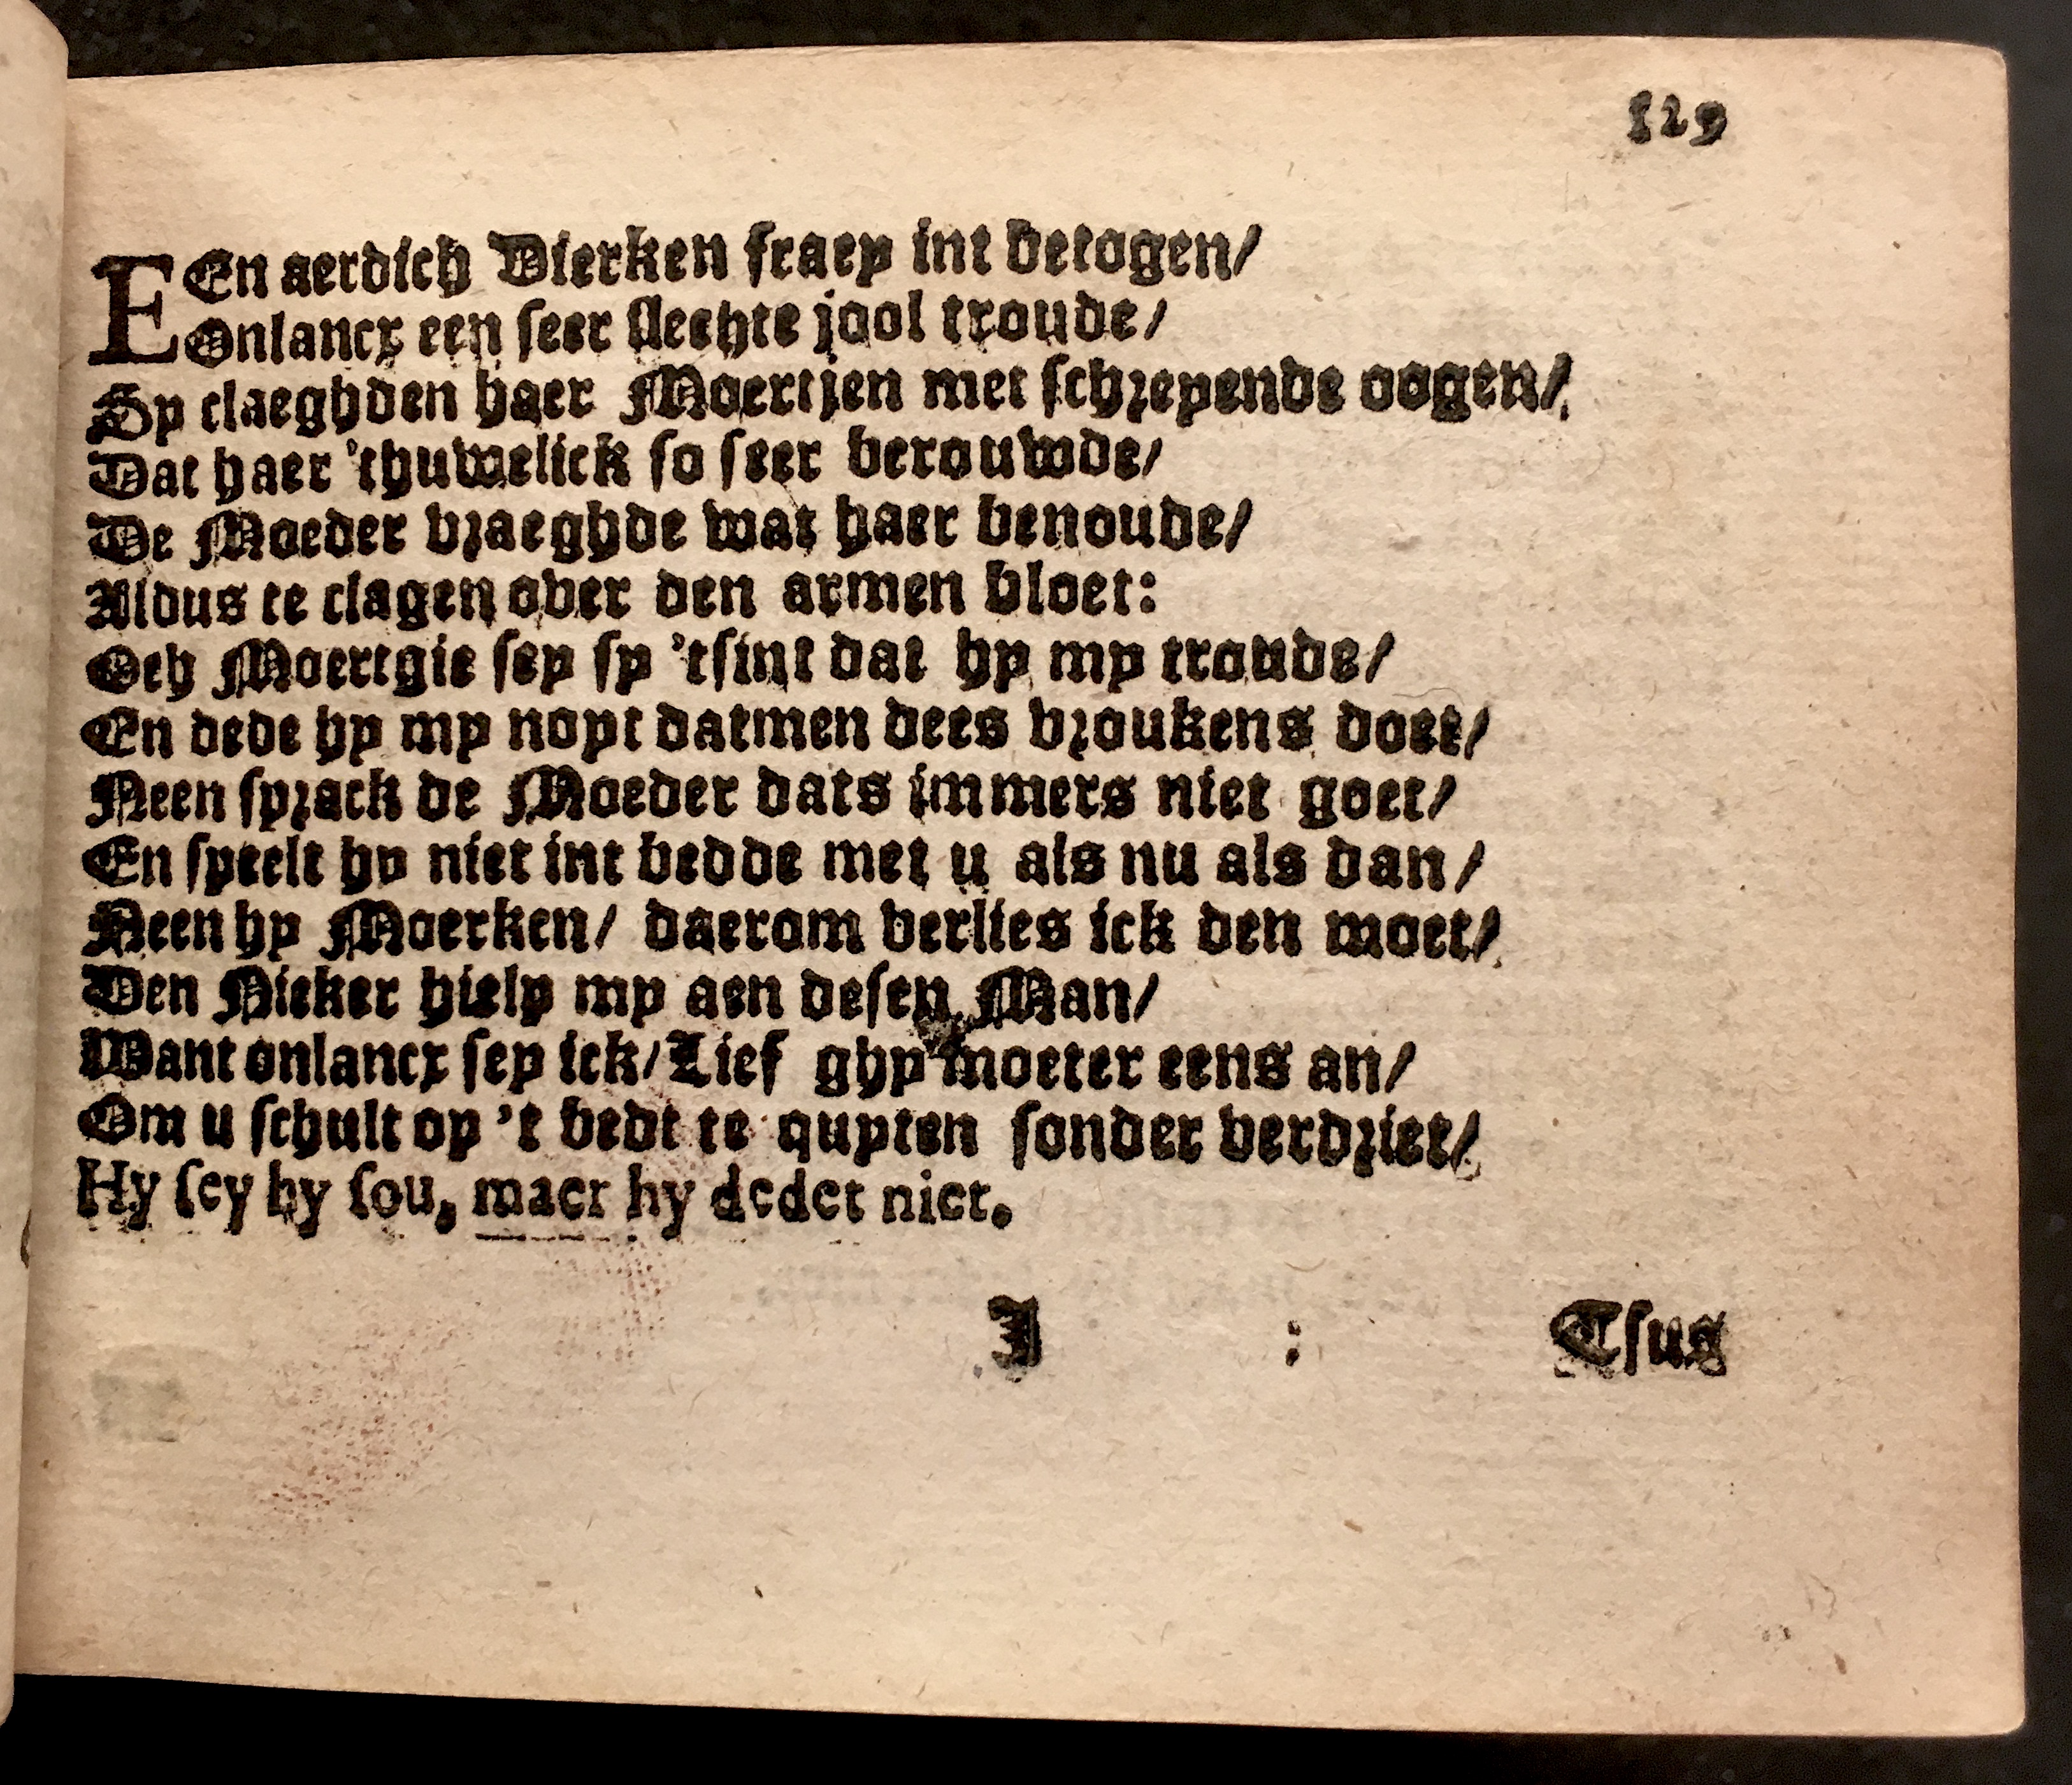 129
EEn aerdich Dierken fraey int betogen/
Onlancx een seer slechte jool troude/
Sy claeghden haer Moertjen met schreyende oogen/
Dat haer 'thuwelick so seer berouwde/
De Moeder vraeghde wat haer benoude/
Aldus te clagen over den armen bloet:
Och Moertgie sey sy 'tsint dat hy my troude/
En dede hy my noyt datmen dees vroukens doet/
Neen sprack de Moeder dats immers niet goet/
En speelt hy niet int bedde met u als nu als dan/
Neen hy Moerken/ daerom verlies ick den moet/
Den Nicker hielp my aen desen Man/
Want onlancx sey ick/ Lief ghy moeter eens an/
Om u schult op 't bedt te quyten sonder verdriet/
Hy sey hy sou, maer hy dedet niet.
I : Tsus